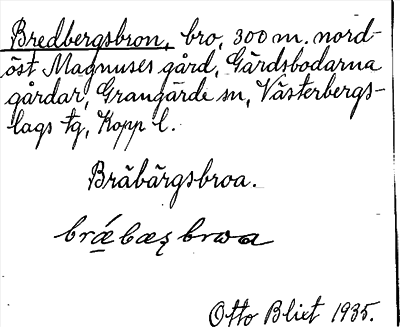 Bredbergsbron, bro, 300 m. nord-
öst Magnuses gård, Gärdsbodarna
gårdar, Grangärde sn, Västerbergs-
lags tg, Kopp l.
Bräbärgsbroa.
Otto Blixt 1935.